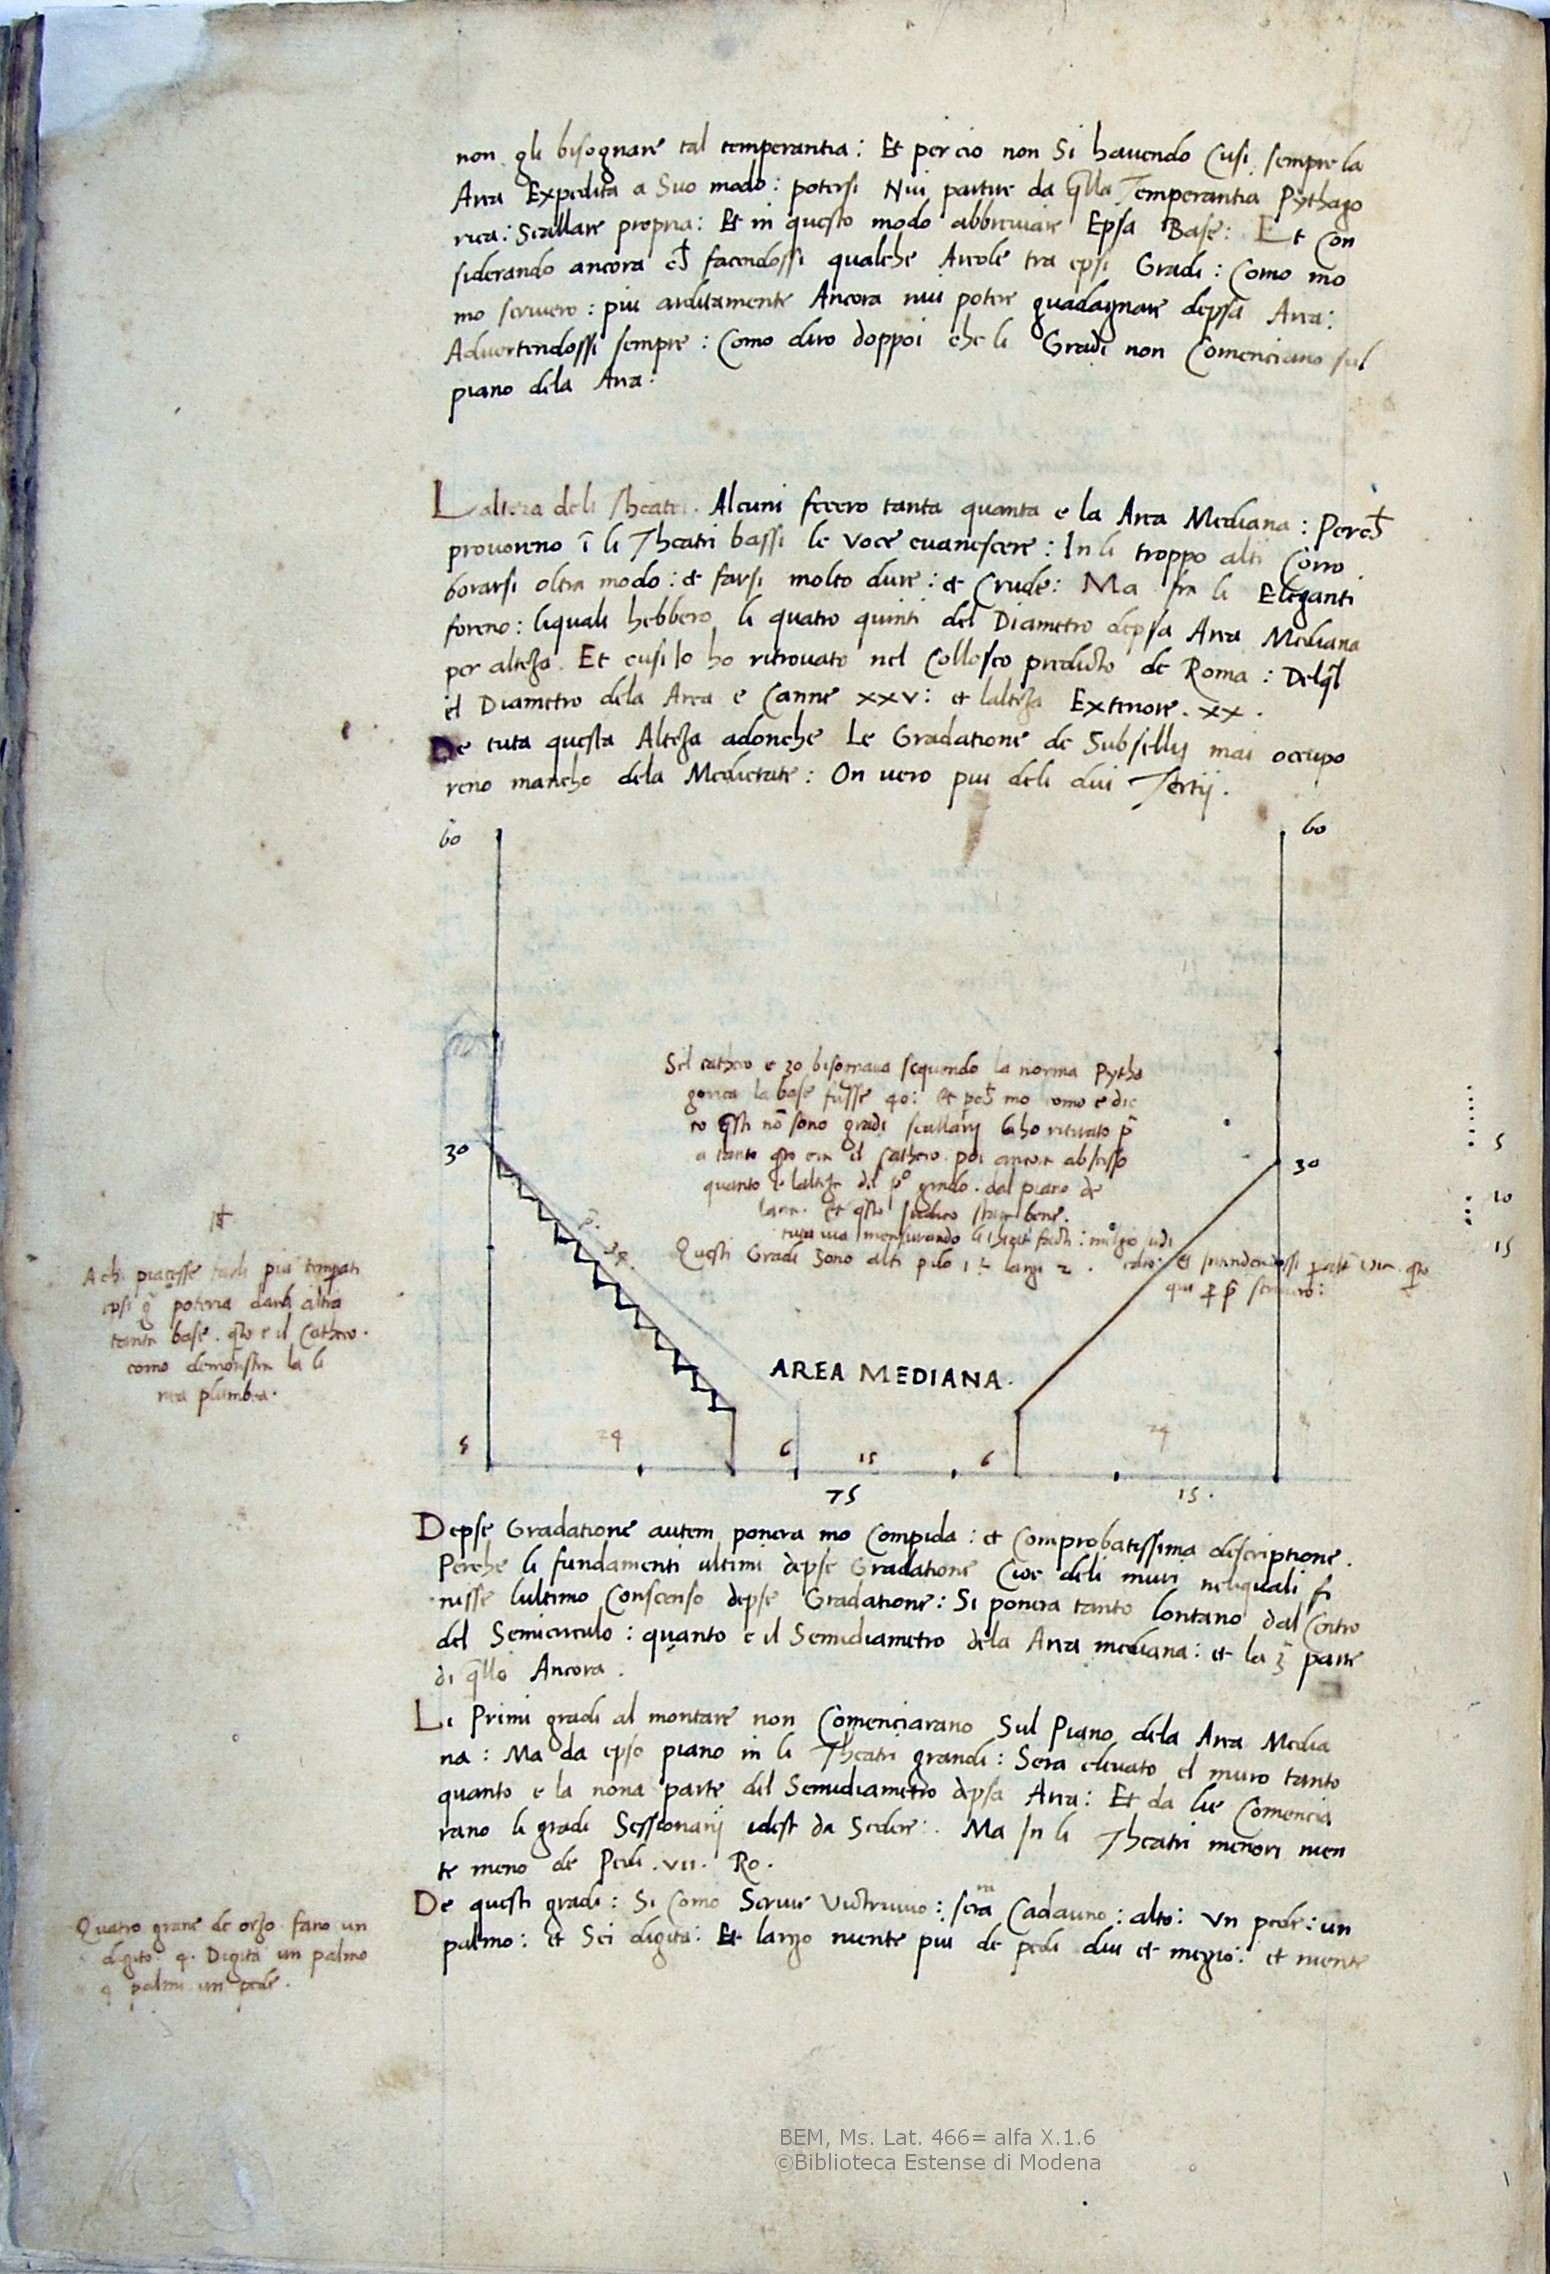 non gli bisognare tal temperantia: Et per cio non Si havendo Cusi sempre la
Area Expedita a Suo modo: potersi Nui partire da qlla Temperantia Pythago
rica: Scallare propria: Et in questo modo abbreviare Epsa Base: Et Con
siderando ancora facendossi qualche Areole tra epsi Gradi: Como mo
mo scrivero: piu arditamente Ancora nui potere guadagnare depsa Area:
Advertendossi sempre: Como diro doppoi che li Gradi non Comenciano sul
piano dela Area:
Laltera deli Theatri. Alcuni fecero tanta quanta e la Area Mediana:
provoreno ī li Theatri bassi le voce evanescere: In li troppo alti Corro
borarsi oltra modo: et farsi molto dure: et Crude: Ma fra li Eleganti
foreno: liquali hebbero li quatro quinti del Diametro depsa Area Mediana
per alteza. Et cusi lo ho ritrovato nel Colloseo predicto de Roma:
el Diametro dela Area e Canne xxv: et lalteza Exteriore. xx.
De tuta questa Alteza adonche Le Gradatione de Subsellij mai occupo
reno mancho dela Medietate: On vero piu deli dui Tertij.
60
60
Sel catheto e 30 bisognava sequendo la norma Pytha
gorica la base fusse 40: mo como e dic
to qsti nō sono gradi scallarij
a tanto era il Catheto. poi ancora
quanto e lalteza del po grado. dal piano de
larea. Et qsto star bene.
tuta via mensurando
Questi Gradi Sono alti largi 2.
30
30
5
10
15
piu temperati
epsi potria darli altra
tanta base. il Catheto.
como demonstra la li
nea plumbea.
AREA MEDIANA.
5
24
6
15
6
24
75
15.
Depse Gradatione autem ponera mo Compida: et Comprobatissima descriptione.
Perche li fundamenti ultimi depse Gradatione Cioe deli muri neliquali fi
nisse lultimo Conscenso depse Gradatione: Si ponera tanto lontano dal Centro
del Semicirculo: quanto e il Semidiametro dela Area mediana: et la 3 parte
di qllo Ancora.
Li Primi gradi al montare non Comenciarano Sul Piano dela Area Media
na: Ma da epso piano in li Theatri grandi: Sera elevato el muro tanto
quanto e la nona parte del Semidiametro depsa Area: Et da lie Comencia
rano li gradi Sessionarij idest da Sedere: Ma In li Theatri menori nien
te meno de Pedi .vii. Ro.
De questi gradi: Si Como Scrive Victruvio: sera Cadauno: alto: Un pede: un
palmo: et Sei digita: Et largo niente piu de pedi dui et megio: et niente
Quatro grane de orzo fano un
digito 4. Digita un palmo
4 palmi un pede.
BEM, Ms. Lat. 466= alfa X.1.6
©Biblioteca Estense di Modena